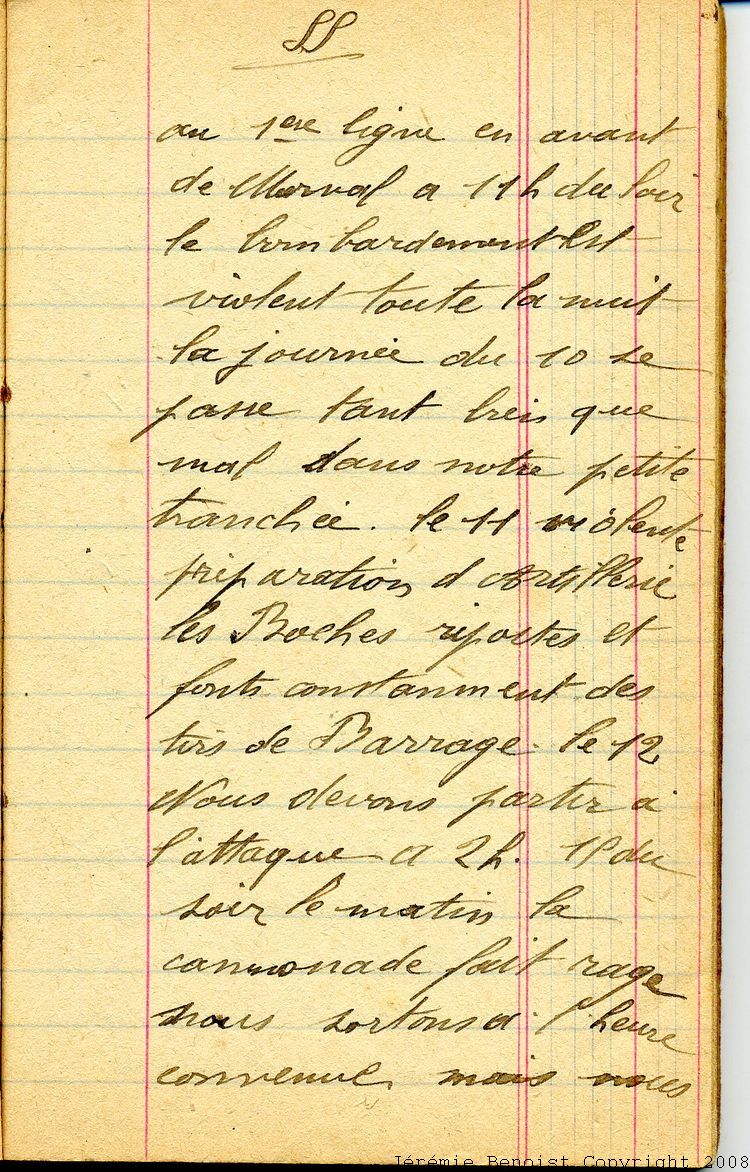 55
au 1ere ligne en avant
de Morval a 11h du soir
le bombardement Est
violent toute la nuit
la journée du 10 se
passe tant bien que
mal dans notre petite
tranchée. le 11 violente
préparation d Artillerie
les Boches ripostes et
fonts constamment des
tirs de Barrage. le 12
Nous devons partir a
l'attaque a 2h. du
soir le matin la
cannonade fait rage
nous sortons a l heure
convenue mais nous
Jérémie Benoist Copyright 2008